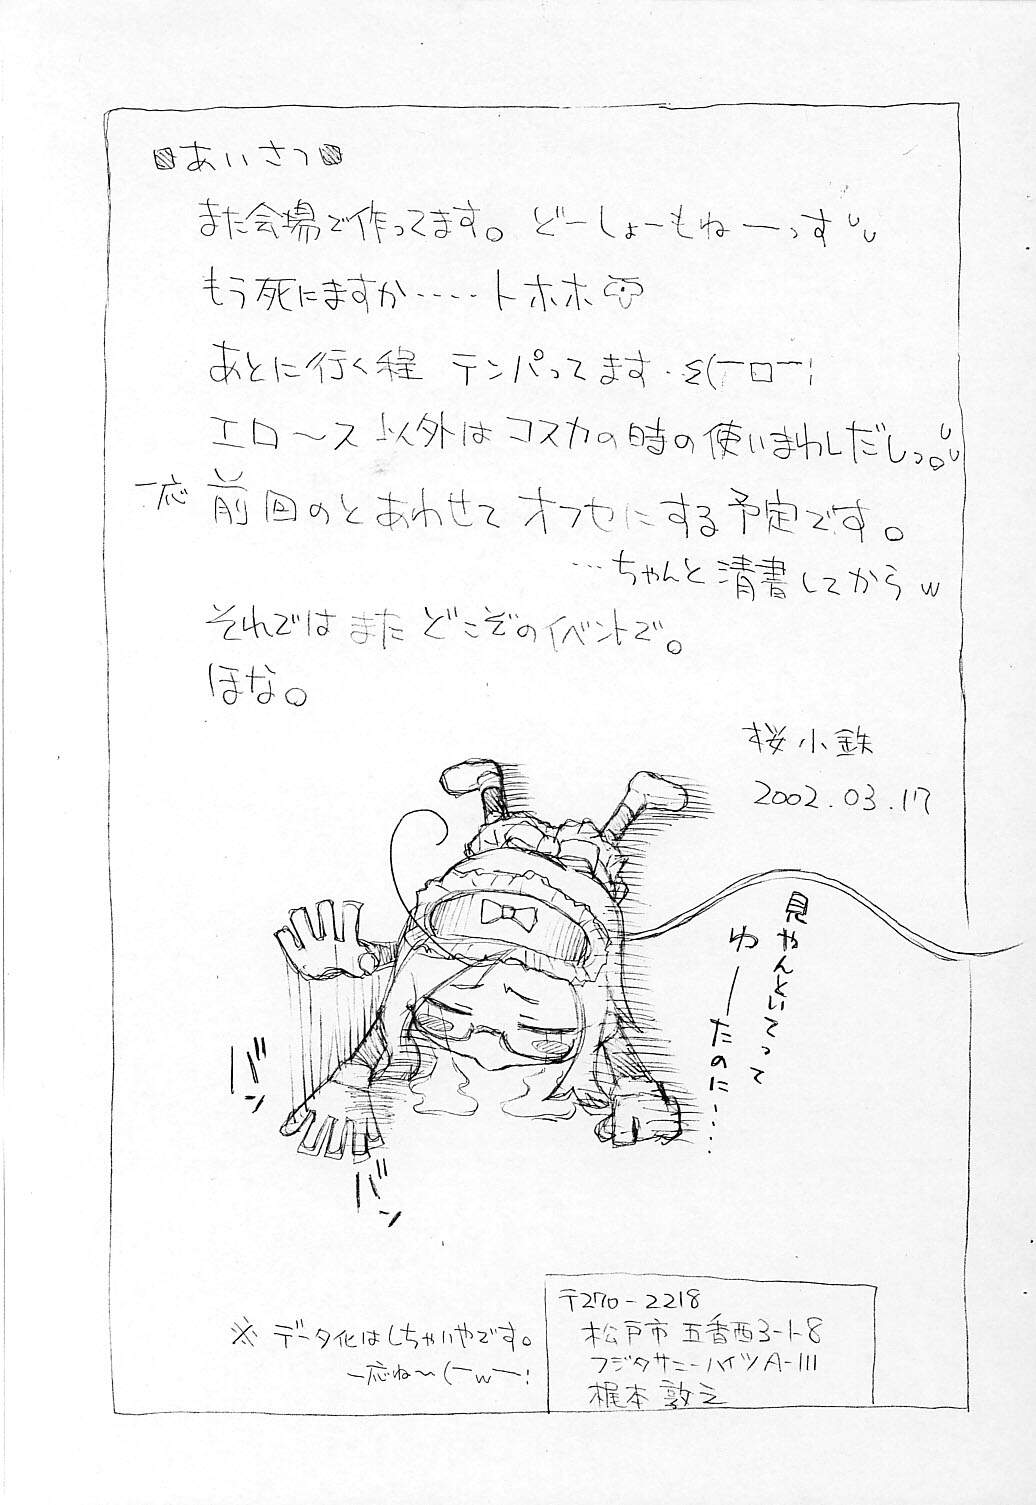 ■あいさつ■
また会場で作ってます。どーしょーもねーっす
もう死にますか・・・・・トホホ
あとに行く程 テンパってます・Σ(￣ロ￣;
エロース以外はコスカの時の使いまわしだしっ。
一応 前回のとあわせてオフセにする予定です。
…ちゃんと清書してからw
それではまたどこぞのイベントで。
ほな。
桜小鉄
2002.03.17
見やんといてって
ゆーたのに・・・・
バン
バン
※データ化はしちゃいやです。
一応ね〜(￣w￣;
〒270-2218
松戸市五香西3-1-8
フジタサニーハイツA-111
梶本敦之